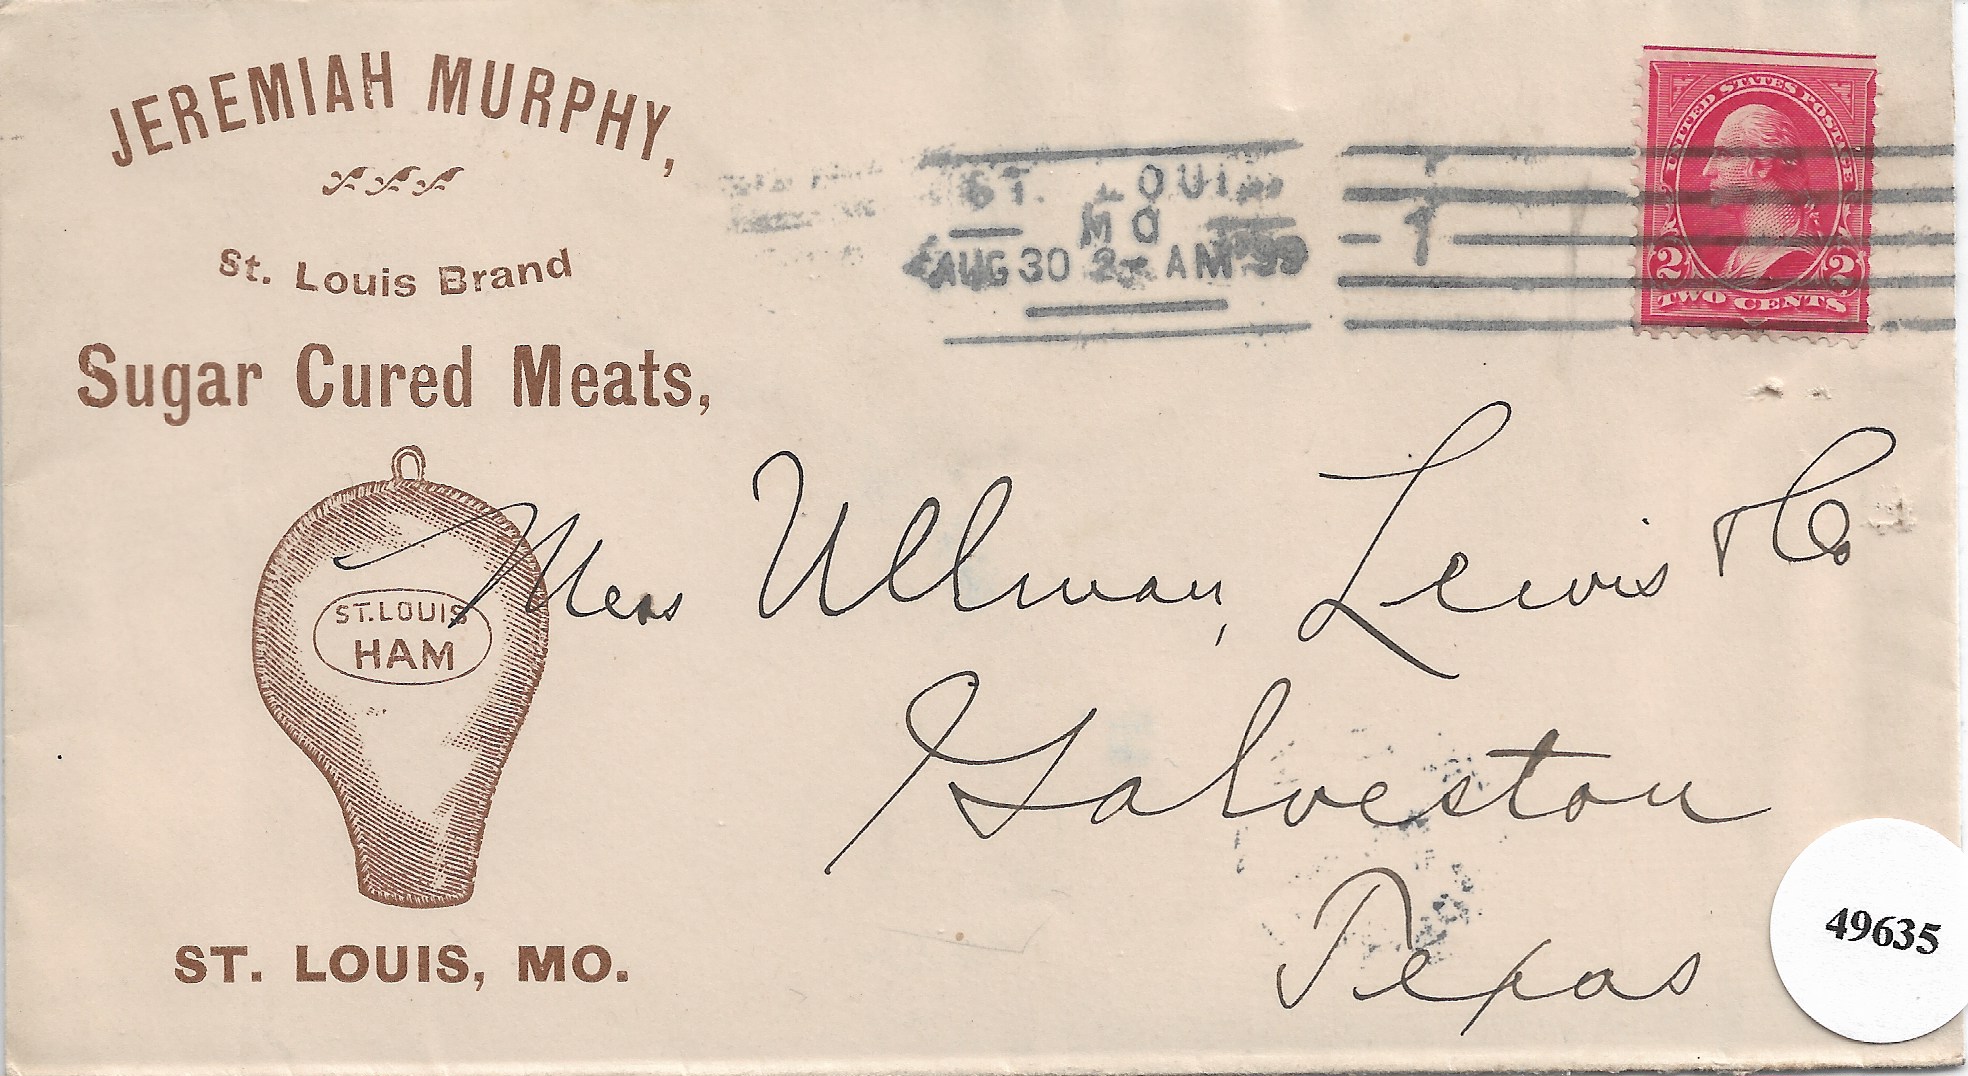 JEREMIAH MURPHY,
St. Louis Brand
Sugar Cured Meats,
ST. LOUIS
HAM
ST. LOUIS, MO.
ST. LOUIS
MO
AUG 30 2 - AM 99
1
UNITED STATES POSTAGE
2 2
TWO CENTS
Mess Ullman, Lewis & Co.
Galveston
Texas
49635